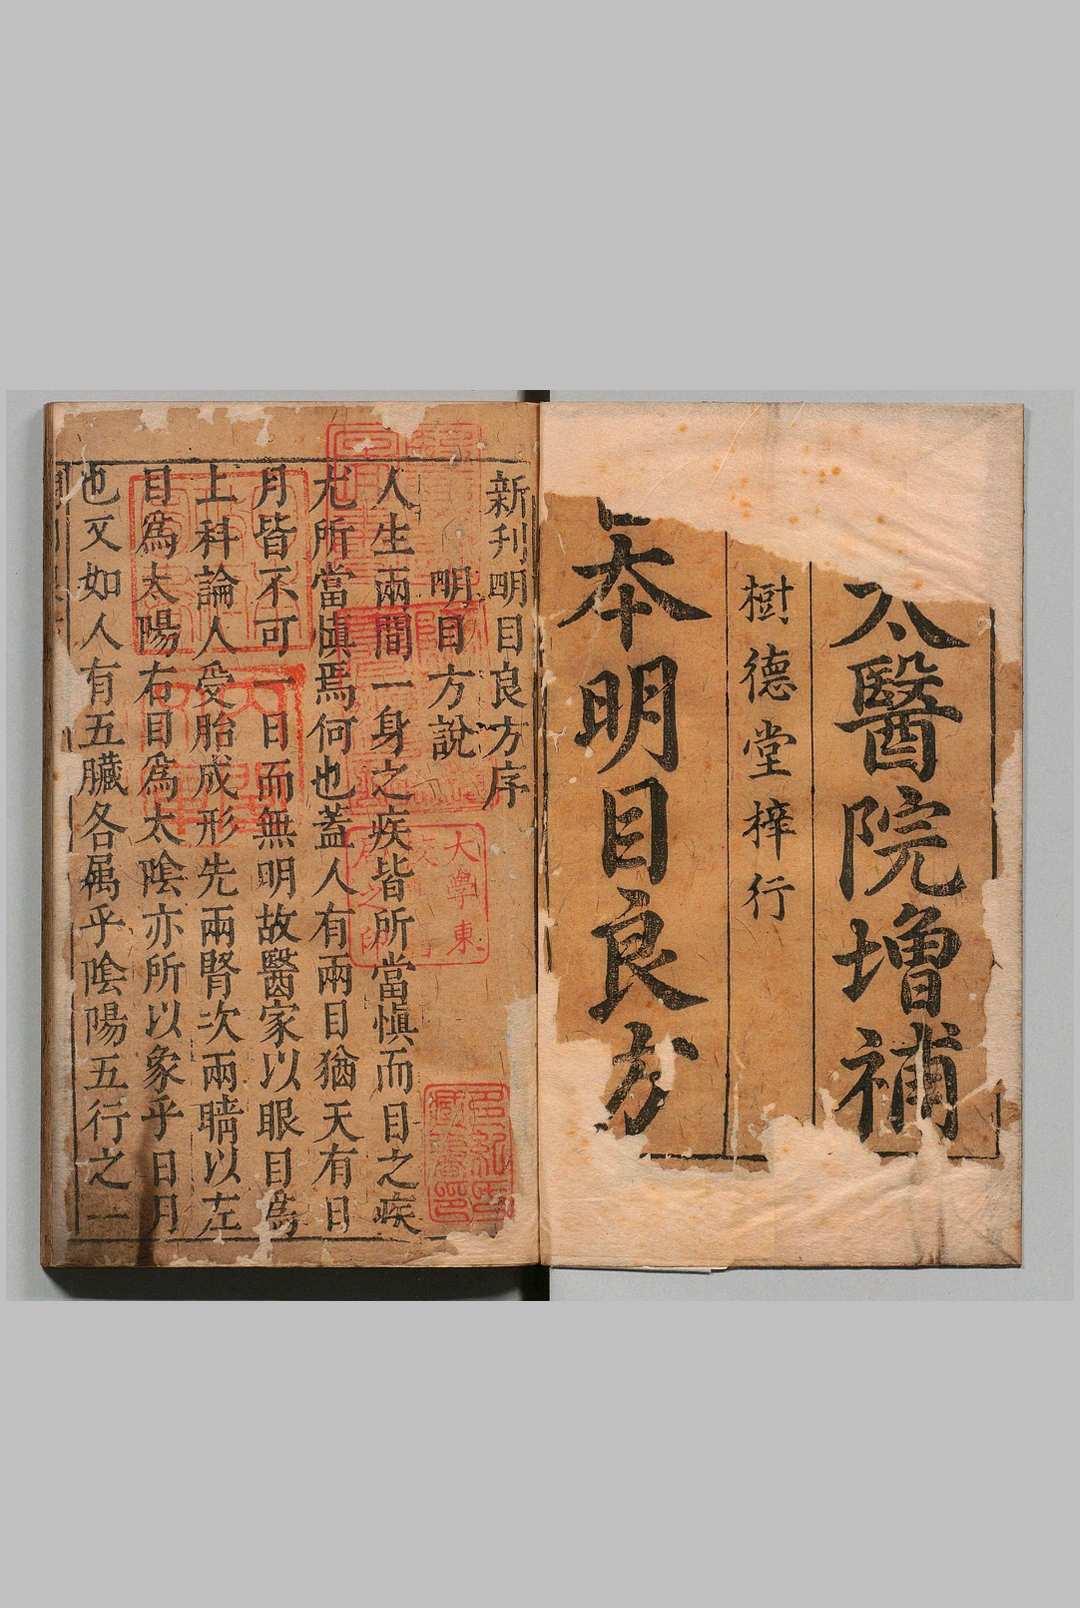 太醫院增補
樹德堂梓行
本明目良方
新刊明目良方序
明目方說
人生兩間一身之疾皆所當愼而目之疾
尤所當謹焉何也蓋人有兩目猶天有日
月皆不可一日而無明故醫家以眼目爲
上科論人受胎成形先兩腎次兩睛以左
目爲太陽右目爲太陰亦所以象乎日月
也又如人有五臟各属乎陰陽五行之一
大學東